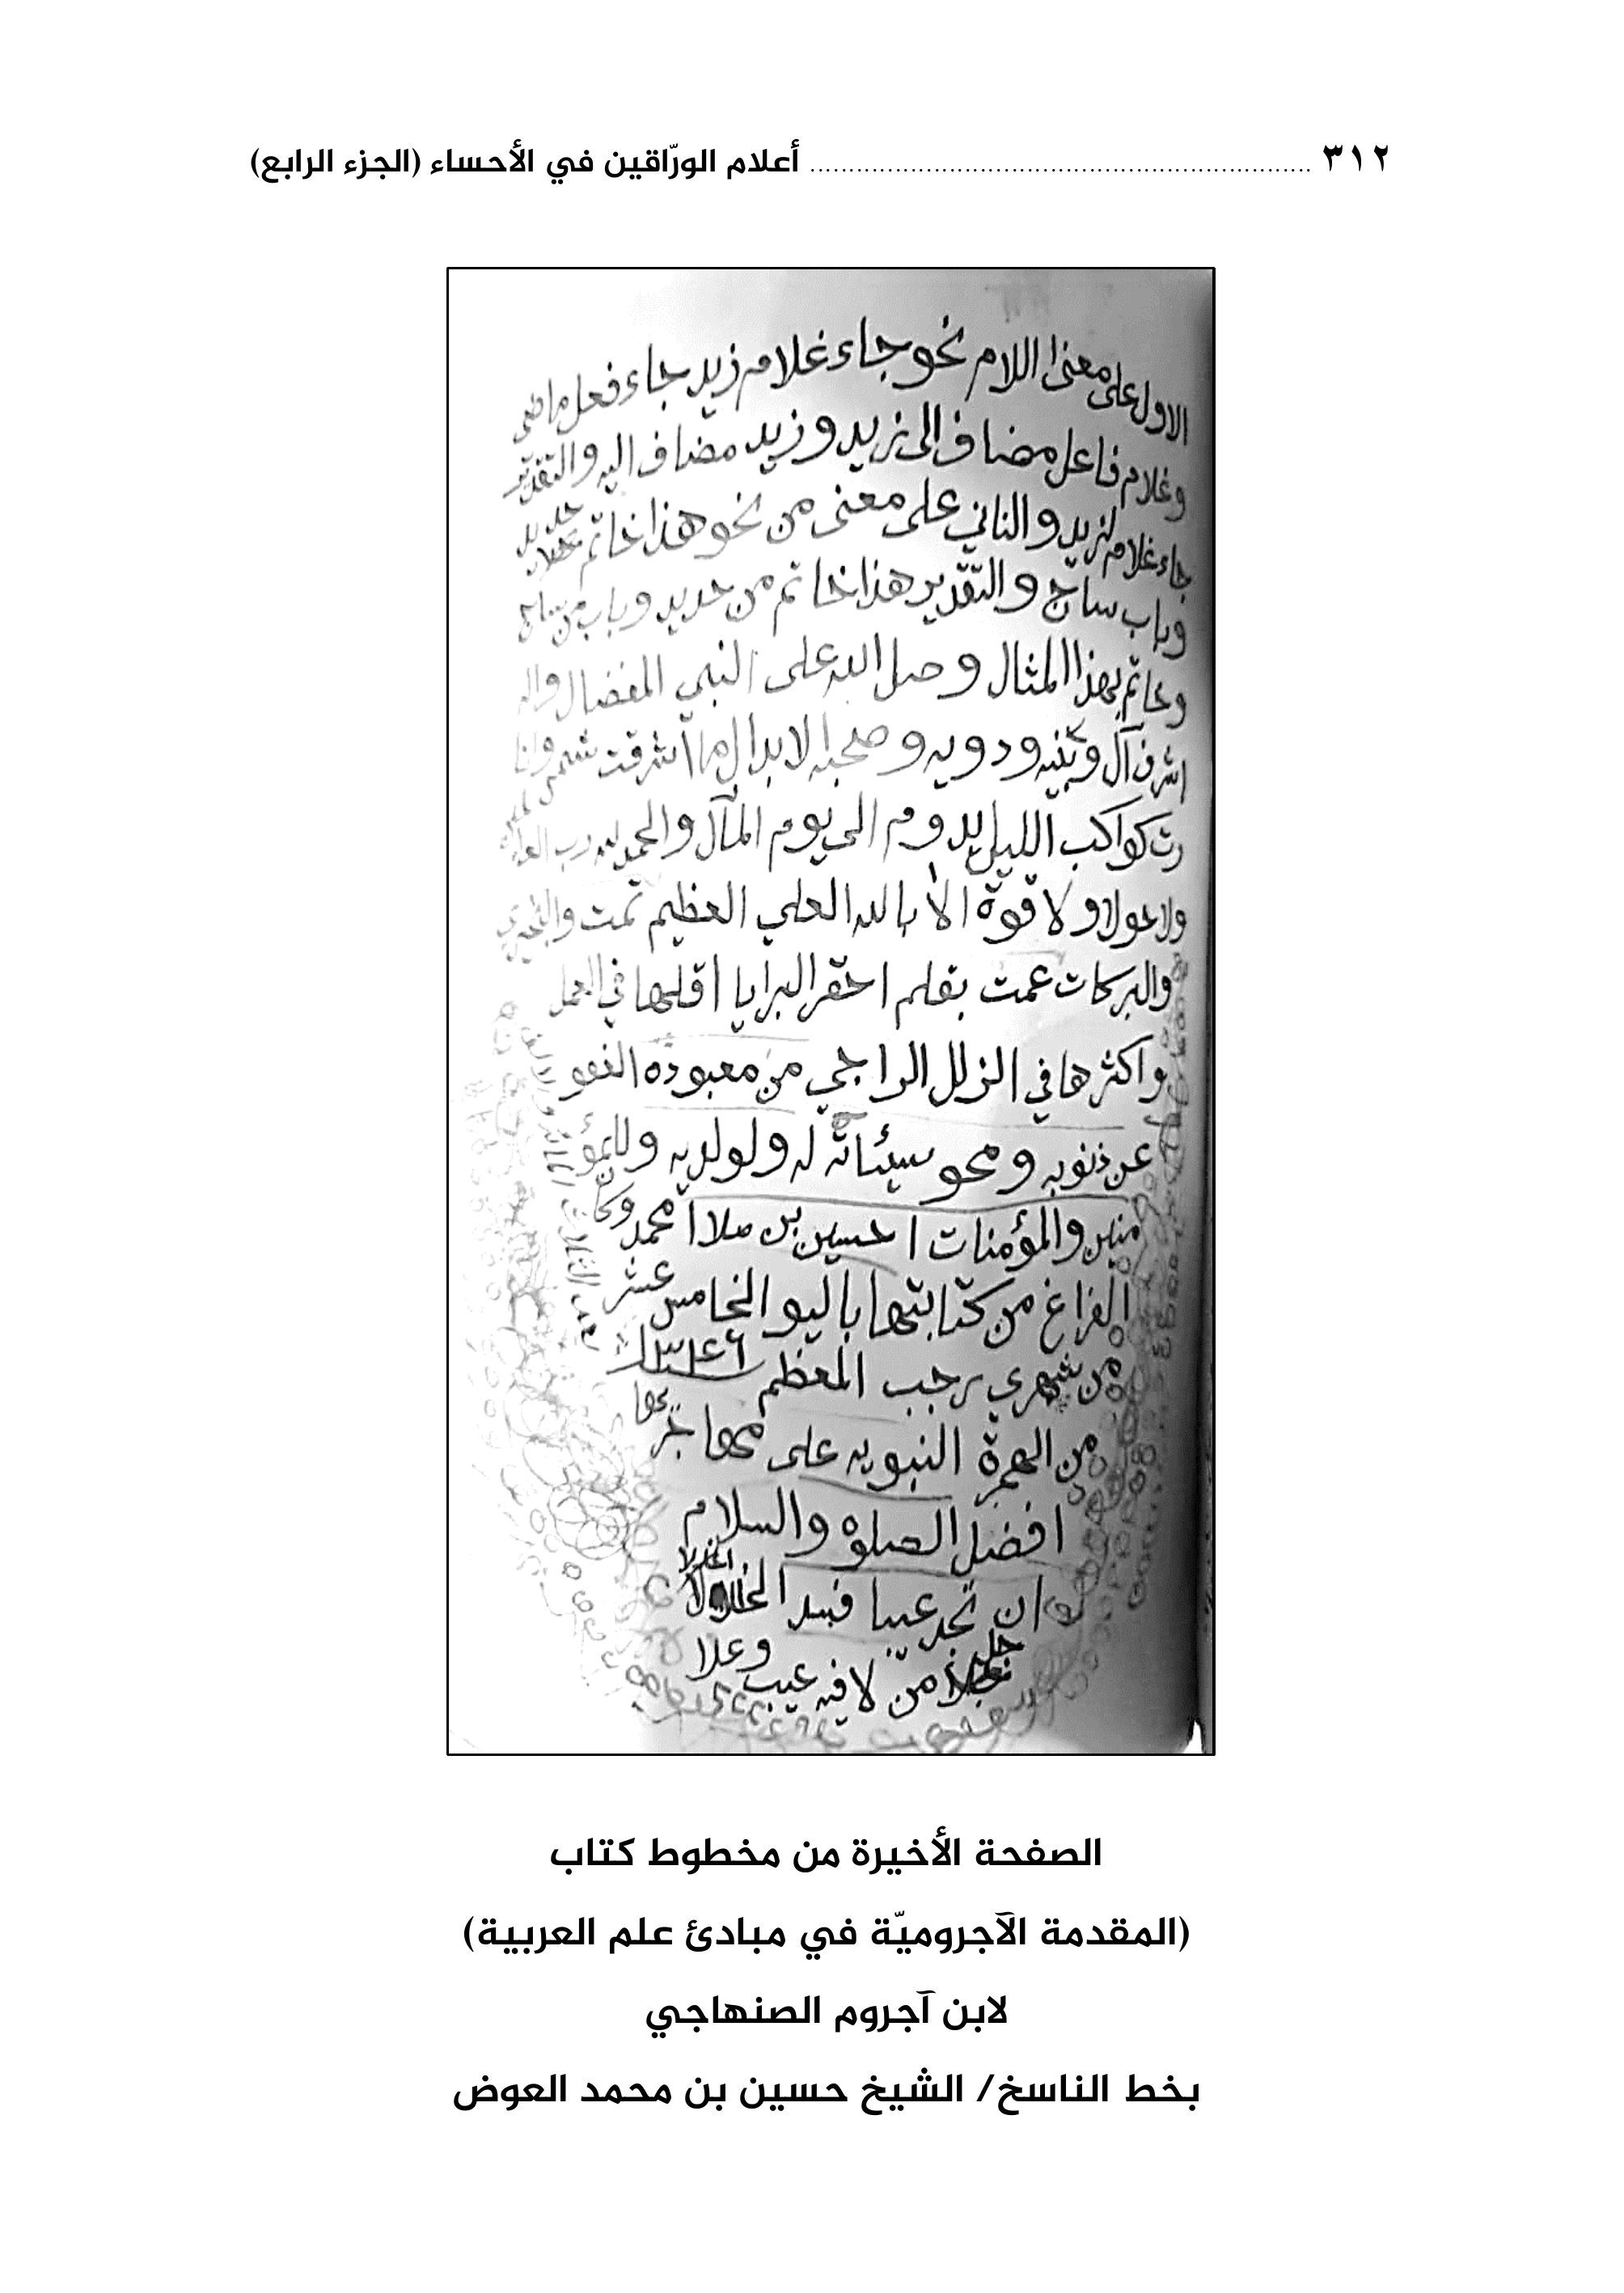 ٣١٢ ........ أعلام الورّاقين في الأحساء (الجزء الرابع)
الاول على معنى اللام نحو جاء غلام زيد جاء فعل ماضي
وغلام فاعل مضاف الى زيد وزيد مضاف اليه والتقدير
جاء غلام لزيد والثاني على معنى من نحو هذا خاتم حديد
وباب ساج والتقدير هذا خاتم من حديد وباب من ساج
وخاتم بهذا المثال وصل الله على النبي المفضال واله
اشرف آل وبنيه ودويه وصحبه الابدال ما اشرقت شمس وانا
رت كواكب الليل يدوم الى يوم المآل والحمد لله رب
ولاحولا ولا قوة الا بالله العلي العظيم تمت
والبركات عمت بقلم احقر البرايا اقلها في العمل
واكثرها في الزلل الراجي من معبوده العفو
عن ذنوبه ومحو سيئاته له ولولديه وللمؤ
منين والمؤمنات احسين بن ملا امحمد وكا
الفراغ من كتابتها باليو الخامس عشر
من شهري رجب المعظم
من الهجرة النبويه على مهاجرها
افضل الصلوة والسلام
وان تجد عيبا فسد الخللا
جل من لا فيه عيب وعلا
الصفحة الأخيرة من مخطوط كتاب
(المقدمة الآجروميّة في مبادئ علم العربية)
لابن آجروم الصنهاجي
بخط الناسخ/ الشيخ حسين بن محمد العوض